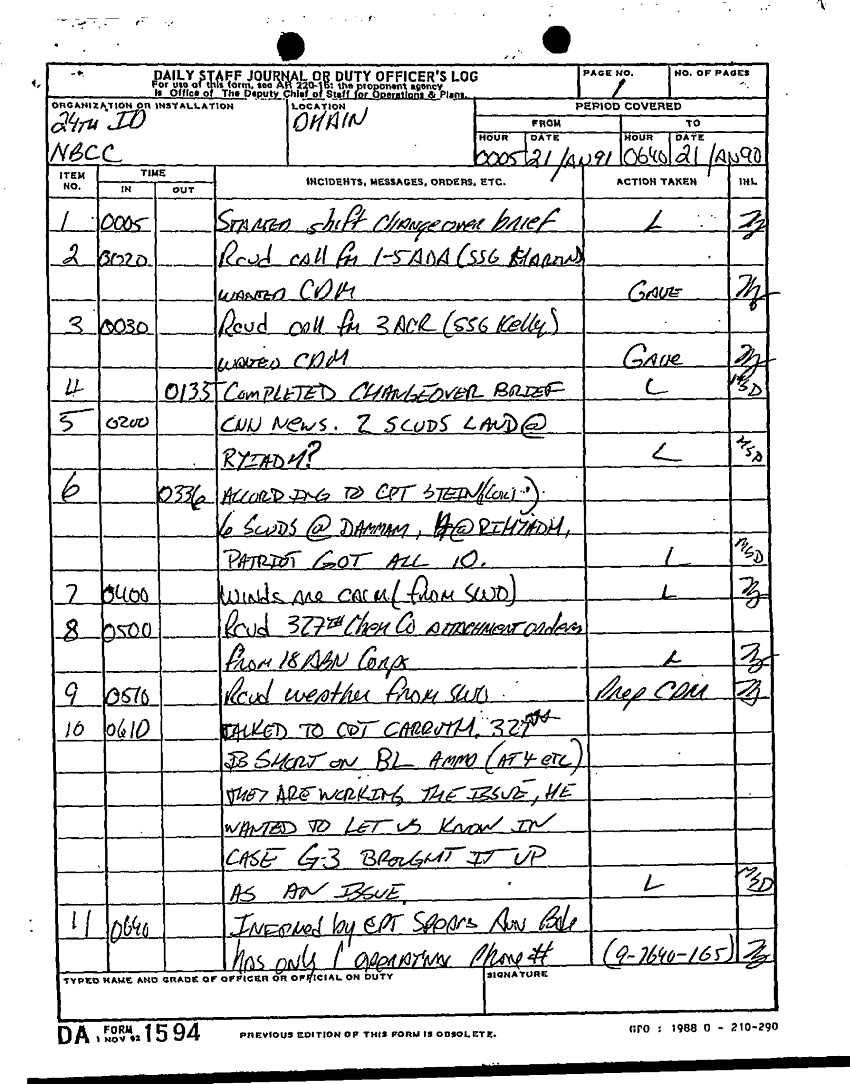 DAILY STAFF JOURNAL OR DUTY OFFICER'S LOG
For use of this form, see AR 220-15; the proponent agency
is Office of The Deputy Chief of Staff for Operations & Plans.
PAGE NO. 1
NO. OF PAGES
ORGANIZATION OR INSTALLATION
24TH ID
NBCC
LOCATION
DHAIN
PERIOD COVERED
FROM TO
HOUR DATE HOUR DATE
0005 21 JAN 91 0640 21 JAN 90
ITEM NO. TIME IN OUT INCIDENTS, MESSAGES, ORDERS, ETC. ACTION TAKEN INL
1 0005 STARTED shift changeover brief L
2 0020 Rcvd call fm 1-5 ADA (SSG MARTIN)
WANTED CDM GAVE
3 0030 Rcvd call fm 3 ACR (SSG Kelly)
WANTED CDM GAVE
4 0135 COMPLETED CHANGEOVER BRIEF L MSD
5 0200 CNN NEWS. 2 SCUDS LAND @
RYIADH? L MSD
6 0336 ACCORDING TO CPT STEIN
6 SCUDS @ DAMMAM, 4 @ RIHYADH,
PATRIOT GOT ALL 10. L MSD
7 0400 WINDS ARE CALM (from SWO) L
8 0500 Rcvd 327TH Chem Co ATTACHMENT orders
from 18 ABN Corps L
9 0510 Rcvd weather from SWO Prep CDM
10 0610 TALKED TO CPT CARRUTH. 327TH
IS SHORT ON BL AMMO (AT4 ETC)
THEY ARE WORKING THE ISSUE, HE
WANTED TO LET US KNOW IN
CASE G-3 BROUGHT IT UP
AS AN ISSUE. L MSD
11 0640 INFORMED by CPT SPEARS
has only 1 OPERATIONAL Phone # (9-7640-165)
TYPED NAME AND GRADE OF OFFICER OR OFFICIAL ON DUTY SIGNATURE
DA FORM 1 NOV 62 1594 PREVIOUS EDITION OF THIS FORM IS OBSOLETE. GPO : 1988 O - 210-290